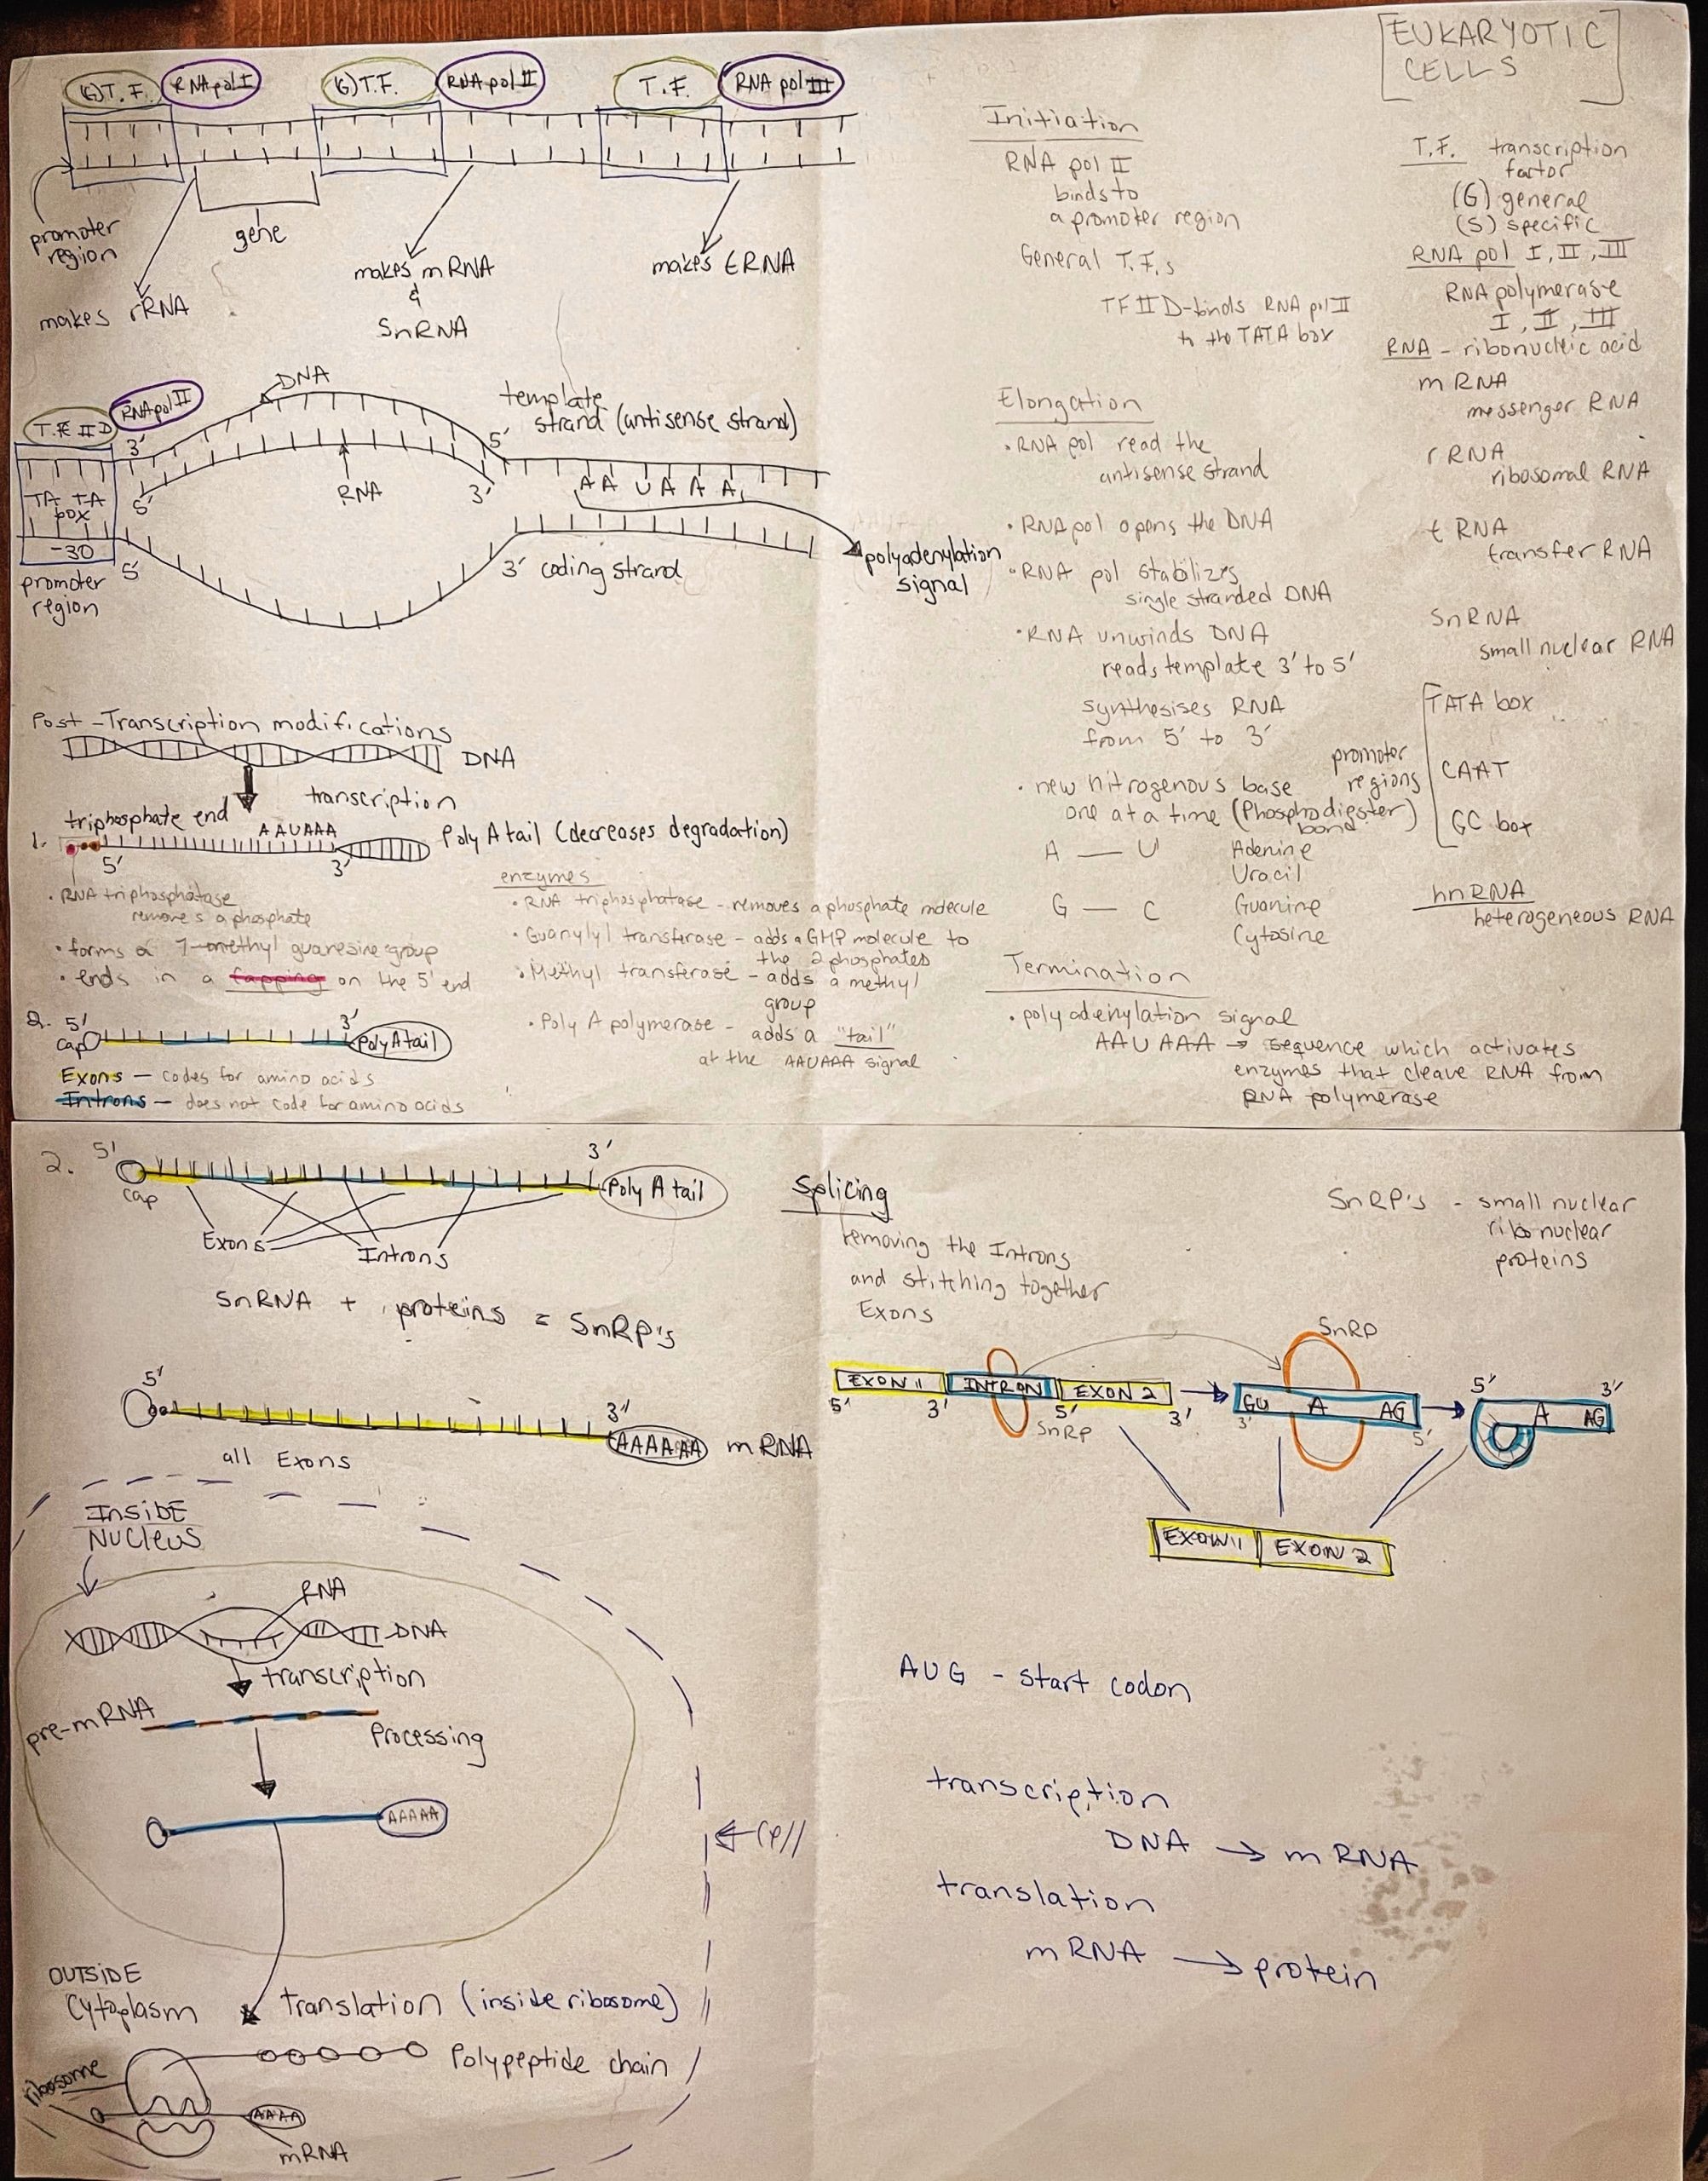 [EUKARYOTIC CELLS]
(G)T.F. RNA pol I (G)T.F. RNA pol II T.F. RNA pol III
promoter region
gene
makes rRNA
makes mRNA
&
SnRNA
makes tRNA
DNA
template strand (antisense strand)
T.F. II D RNA pol II
3' 5'
TATA box
-30
promoter region
5' RNA 3'
AAUAAA
polyadenylation signal
5' 3' coding strand
Post-Transcription modifications
DNA
transcription
1. triphosphate end AAUAAA Poly A tail (decreases degradation)
5' 3'
• RNA triphosphatase
removes a phosphate
• forms a 7-methyl guanesine group
• ends in a capping on the 5' end
enzymes
• RNA triphosphatase - removes a phosphate molecule
• Guanylyl transferase - adds a GMP molecule to
the 2 phosphates
• Methyl transferase - adds a methyl
group
• Poly A polymerase - adds a "tail"
at the AAUAAA signal
2. 5' 3'
cap Poly A tail
Exons - codes for amino acids
Introns - does not code for amino acids
Initiation
RNA pol II
binds to
a promoter region
General T.F.s
TF II D - binds RNA pol II
to the TATA box
Elongation
• RNA pol read the
antisense strand
• RNA pol opens the DNA
• RNA pol stabilizes
single stranded DNA
• RNA unwinds DNA
reads template 3' to 5'
synthesises RNA
from 5' to 3'
• new nitrogenous base
one at a time (Phosphodiester)
bond
A — U Adenine
Uracil
G — C Guanine
Cytosine
Termination
• polyadenylation signal
AAUAAA → sequence which activates
enzymes that cleave RNA from
RNA polymerase
T.F. transcription
factor
(G) general
(S) specific
RNA pol I, II, III
RNA polymerase
I, II, III
RNA - ribonucleic acid
mRNA
messenger RNA
rRNA
ribosomal RNA
tRNA
transfer RNA
SnRNA
small nuclear RNA
promoter regions
TATA box
CAAT
GC box
hnRNA
heterogeneous RNA
2. 5' 3'
cap Poly A tail
Exons Introns
SnRNA + proteins = SnRP's
5' 3'
AAAAAA mRNA
all Exons
Splicing
removing the Introns
and stitching together
Exons
SnRP's - small nuclear
ribonuclear
proteins
SnRP
EXON 1 INTRON EXON 2 GU A AG A AG
5' 3' 5' 3' 3' 5' 5' 3'
SnRP
EXON 1 EXON 2
INSIDE
NUCLEUS
RNA
DNA
transcription
pre-mRNA
Processing
AAAAA
Cell
OUTSIDE
Cytoplasm
translation (inside ribosome)
Polypeptide chain
ribosome
AAAA
mRNA
AUG - start codon
transcription
DNA → mRNA
translation
mRNA → protein